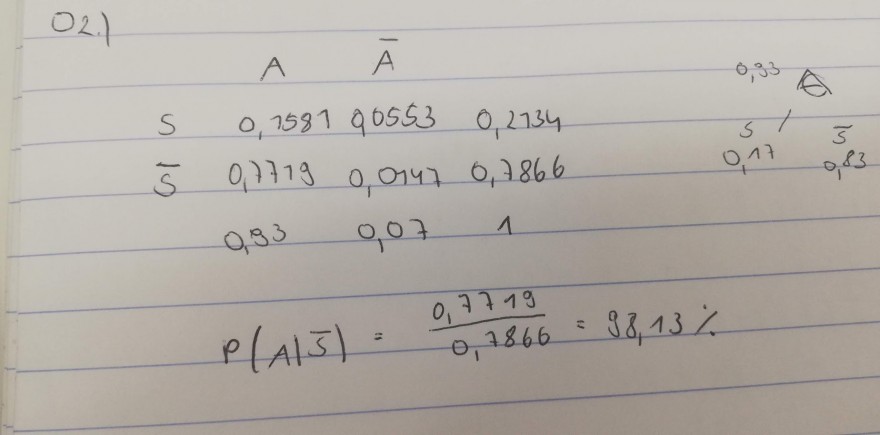 02.)
A Ā
S 0,1581 0,0553 0,2134
S̄ 0,7719 0,0147 0,7866
0,93 0,07 1
0,93 A
S / S̄
0,17 0,83
P(A|S̄) = 0,7719 / 0,7866 = 98,13 %